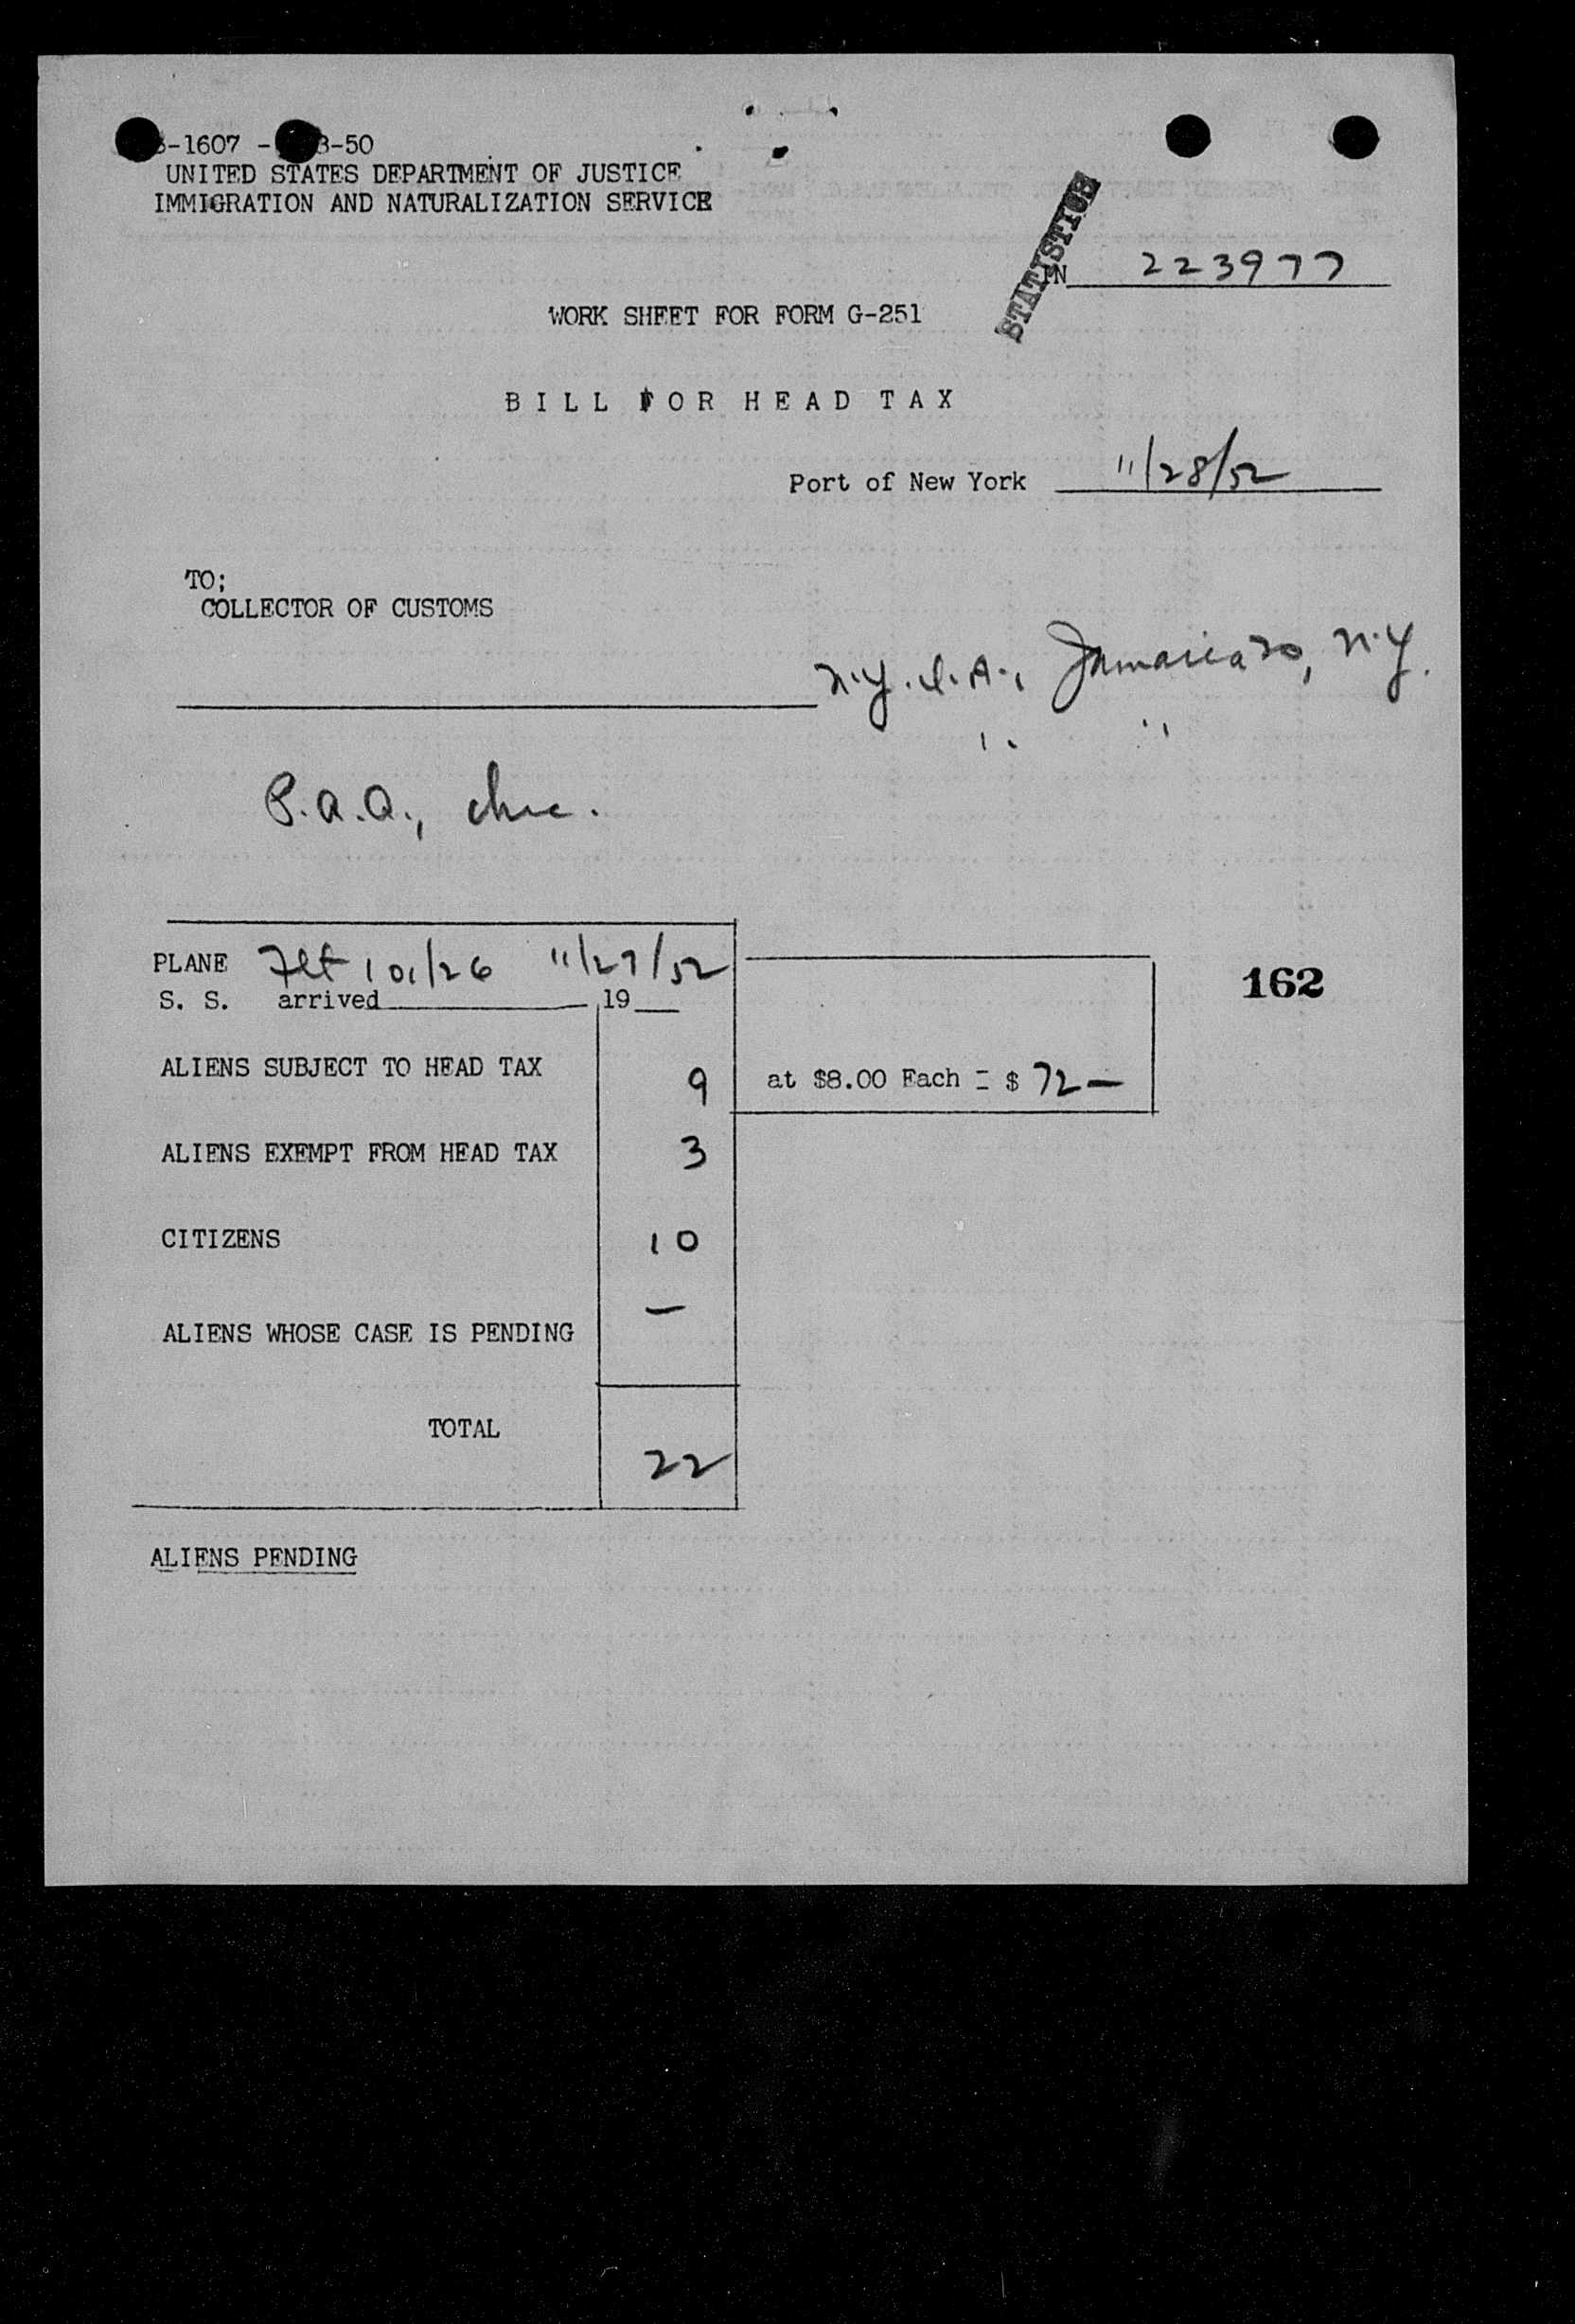 -1607 - 3-50
UNITED STATES DEPARTMENT OF JUSTICE
IMMIGRATION AND NATURALIZATION SERVICE
STATISTICS
N 223977
WORK SHEET FOR FORM G-251
BILL FOR HEAD TAX
Port of New York 11/28/52
TO;
COLLECTOR OF CUSTOMS
N.Y.I.A., Jamaica 30, N.Y.
" "
P.A.A., Inc.
PLANE Flt 101/26 11/27/52
S. S. arrived 19
162
ALIENS SUBJECT TO HEAD TAX 9 at $8.00 Each = $ 72 —
ALIENS EXEMPT FROM HEAD TAX 3
CITIZENS 10
ALIENS WHOSE CASE IS PENDING —
TOTAL 22
ALIENS PENDING